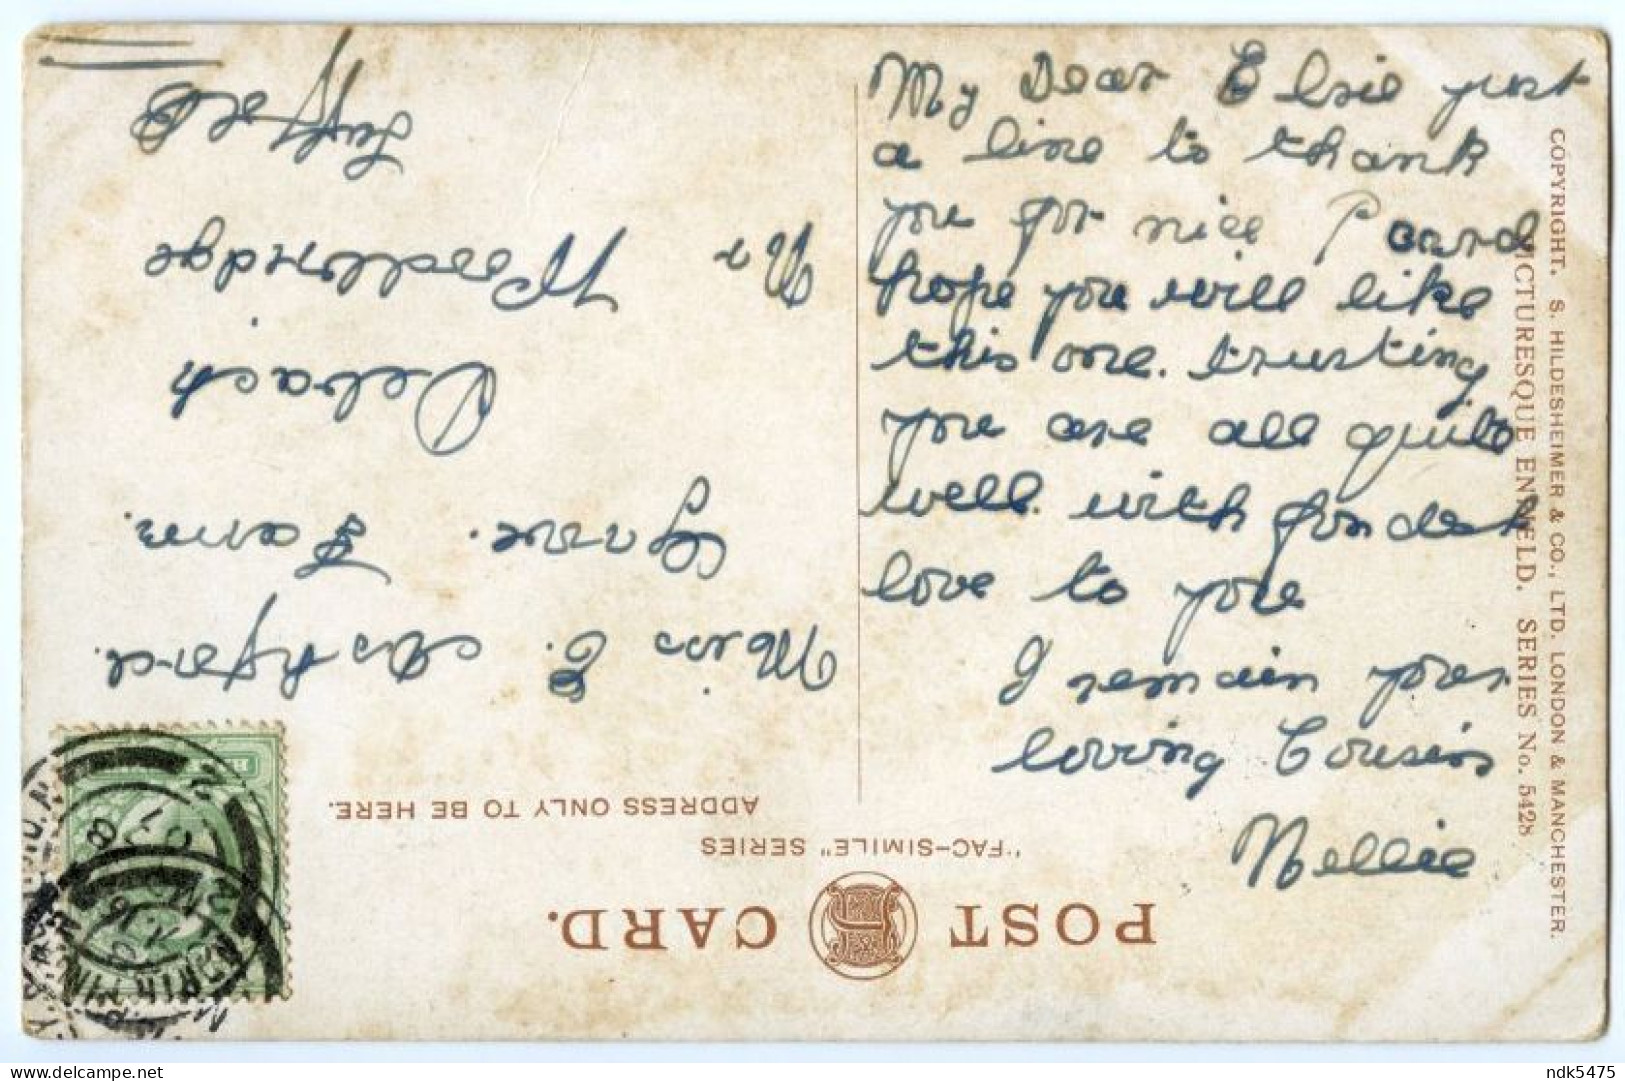 My Dear Elsie just
a line to thank
you for nice P card
hope you will like
this one. trusting
you are all quite
well. with fondest
love to you
I remain your
loving Cousin
Nellie
POST CARD.
"FAC-SIMILE" SERIES
ADDRESS ONLY TO BE HERE.
Miss E. Ashford.
Grove. Farm.
Debach
Nr Woodbridge
Suffolk
COPYRIGHT. S. HILDESHEIMER & CO., LTD. LONDON & MANCHESTER.
PICTURESQUE ENFIELD. SERIES No. 5428
ndk5475